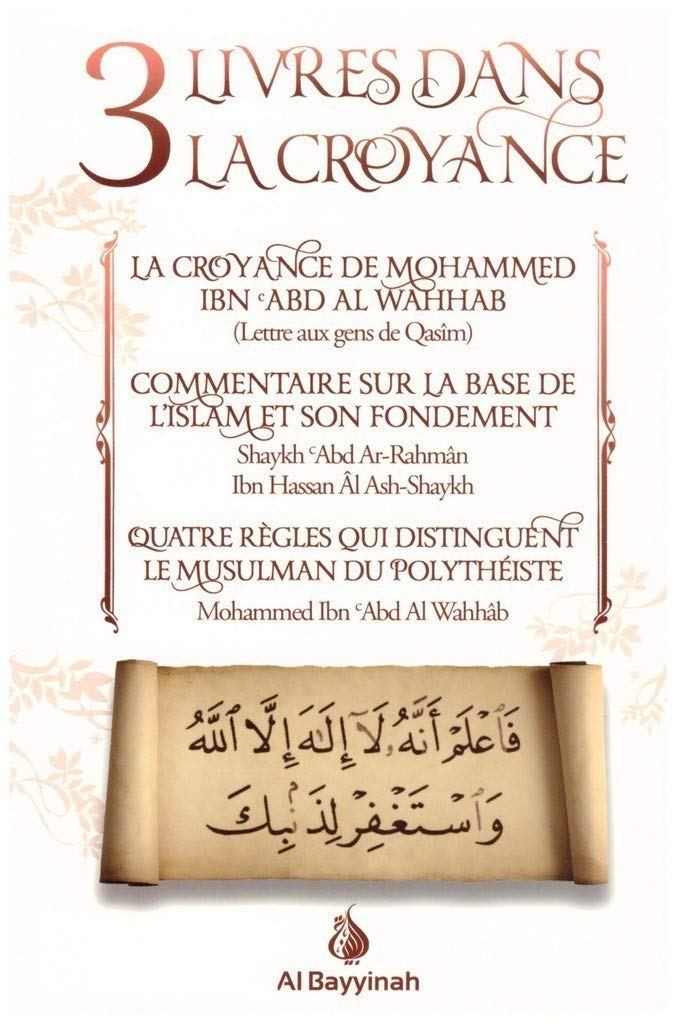 3 LIVRES DANS
LA CROYANCE
LA CROYANCE DE MOHAMMED
IBN ᶜABD AL WAHHAB
(Lettre aux gens de Qasîm)
COMMENTAIRE SUR LA BASE DE
L'ISLAM ET SON FONDEMENT
Shaykh ᶜAbd Ar-Rahmân
Ibn Hassan Âl Ash-Shaykh
QUATRE RÈGLES QUI DISTINGUENT
LE MUSULMAN DU POLYTHÉISTE
Mohammed Ibn ᶜAbd Al Wahhâb
فَٱعۡلَمۡ أَنَّهُۥ لَآ إِلَٰهَ إِلَّا ٱللَّهُ
وَٱسۡتَغۡفِرۡ لِذَنۢبِكَ
Al Bayyinah